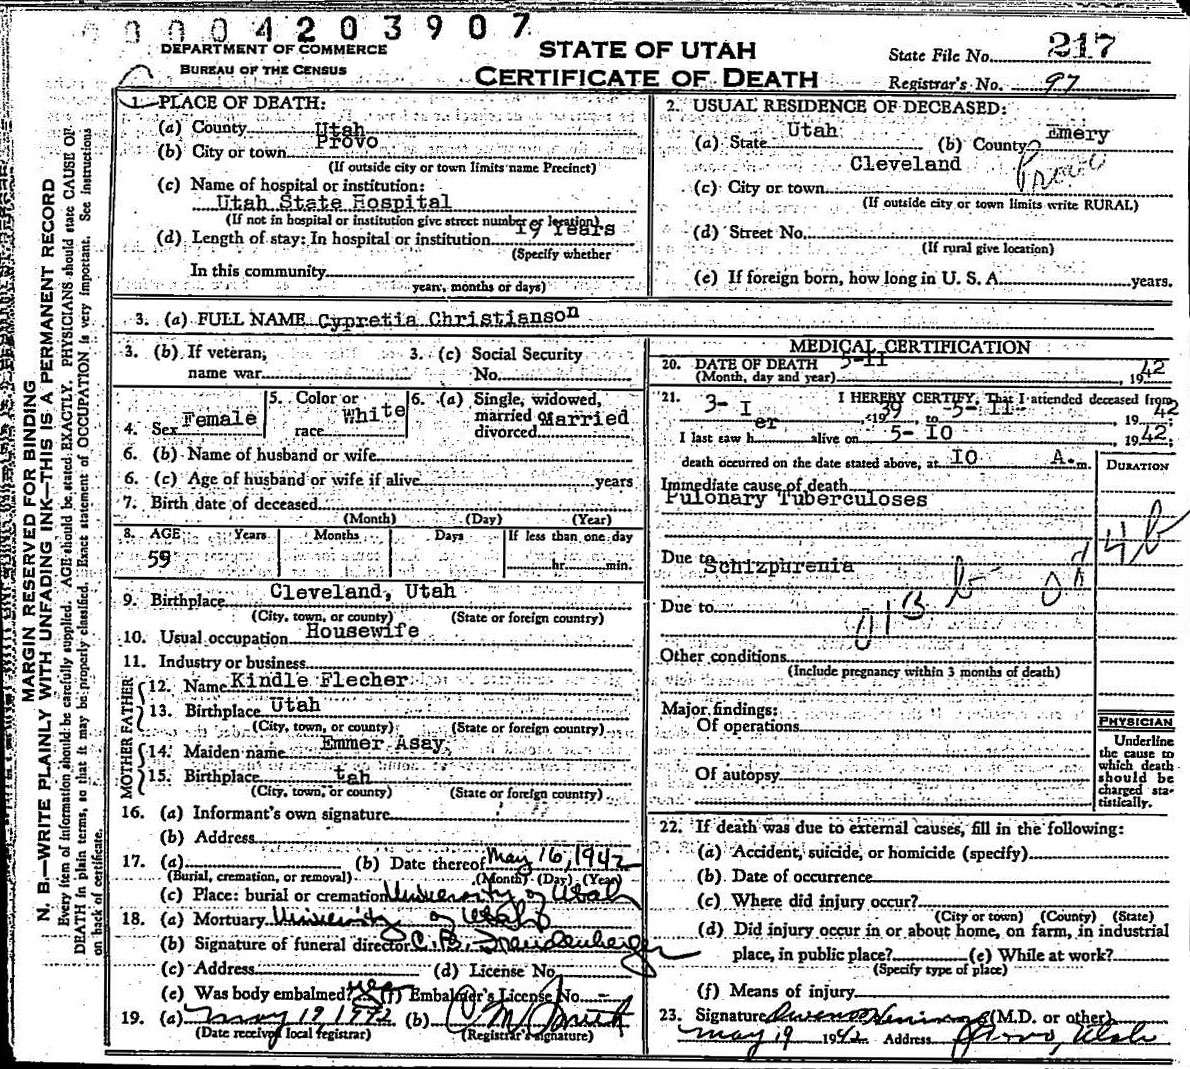 0004203907
DEPARTMENT OF COMMERCE
BUREAU OF THE CENSUS
STATE OF UTAH
CERTIFICATE OF DEATH
State File No. 217
Registrar's No. 97
MARGIN RESERVED FOR BINDING
N. B.—WRITE PLAINLY WITH UNFADING INK—THIS IS A PERMANENT RECORD
Every item of information should be carefully supplied. AGE should be stated EXACTLY. PHYSICIANS should state CAUSE OF
DEATH in plain terms, so that it may be properly classified. Exact statement of OCCUPATION is very important. See instructions
on back of certificate.
1. PLACE OF DEATH:
(a) County Utah
(b) City or town Provo
(If outside city or town limits name Precinct)
(c) Name of hospital or institution:
Utah State Hospital
(If not in hospital or institution give street number or location)
(d) Length of stay: In hospital or institution 19 Years
(Specify whether
In this community
years, months or days)
2. USUAL RESIDENCE OF DECEASED:
(a) State Utah (b) County Emery
Cleveland Provo
(c) City or town
(If outside city or town limits write RURAL)
(d) Street No.
(If rural give location)
(e) If foreign born, how long in U. S. A. years.
3. (a) FULL NAME Cypretia Christianson
3. (b) If veteran, name war
3. (c) Social Security No.
4. Sex Female
5. Color or race White
6. (a) Single, widowed, married or divorced Married
6. (b) Name of husband or wife
6. (c) Age of husband or wife if alive years
7. Birth date of deceased
(Month) (Day) (Year)
8. AGE Years Months Days If less than one day
59 hr. min.
9. Birthplace Cleveland, Utah
(City, town, or county) (State or foreign country)
10. Usual occupation Housewife
11. Industry or business
FATHER
12. Name Kindle Flecher
13. Birthplace Utah
(City, town, or county) (State or foreign country)
MOTHER
14. Maiden name Emmer Asay
15. Birthplace tah
(City, town, or county) (State or foreign country)
16. (a) Informant's own signature
(b) Address
17. (a) (b) Date thereof May 16, 1942
(Burial, cremation, or removal) (Month) (Day) (Year)
(c) Place: burial or cremation University of Utah
18. (a) Mortuary University of Utah
(b) Signature of funeral director C. B. Freudenberger
(c) Address (d) License No.
(e) Was body embalmed? yes (f) Embalmer's License No. —
19. (a) May 19, 1942 (b) C M Smith
(Date received local registrar) (Registrar's signature)
MEDICAL CERTIFICATION
20. DATE OF DEATH 5-11
(Month, day and year) , 1942
21. I HEREBY CERTIFY, That I attended deceased from
3- I , 1939 to 5- 11- , 1942
I last saw her alive on 5- IO , 1942;
death occurred on the date stated above, at IO A. m.
DURATION
Immediate cause of death
Pulonary Tuberculoses
Due to Schizphrenia
Due to
013
Other conditions
(Include pregnancy within 3 months of death)
Major findings:
Of operations
Of autopsy
PHYSICIAN
Underline
the cause to
which death
should be
charged sta-
tistically.
22. If death was due to external causes, fill in the following:
(a) Accident, suicide, or homicide (specify)
(b) Date of occurrence
(c) Where did injury occur?
(City or town) (County) (State)
(d) Did injury occur in or about home, on farm, in industrial
place, in public place? (e) While at work?
(Specify type of place)
(f) Means of injury
23. Signature (M.D. or other)
May 19 1942 Address Provo, Utah